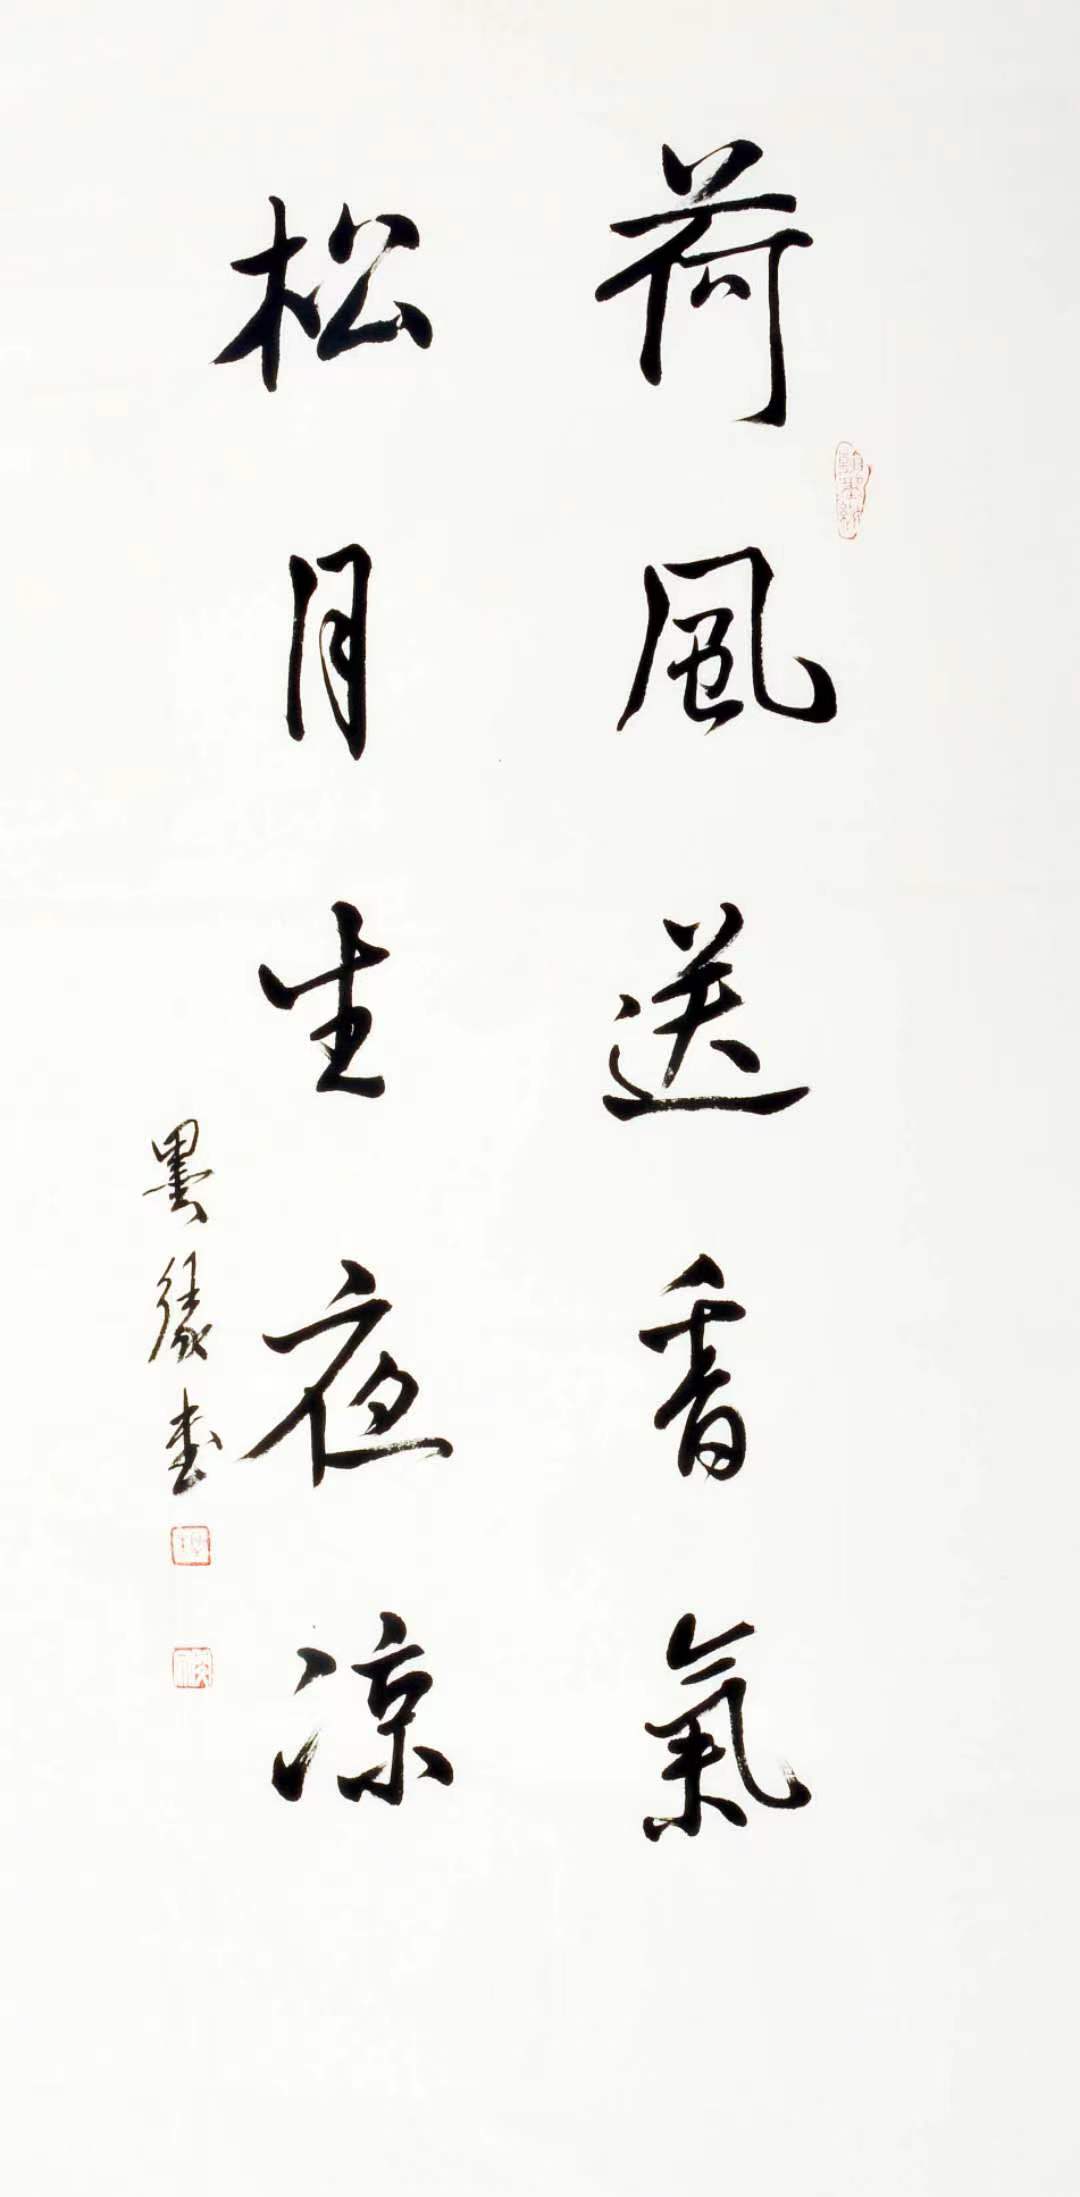 荷風送香氣
松月生夜涼
墨緣書